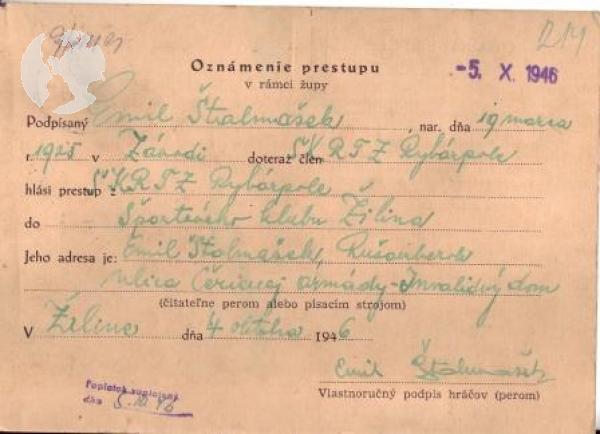 214
Oznámenie prestupu
-5. X. 1946
v rámci župy
Podpísaný Emil Štalmašek, nar. dňa 19 marca
r. 1925 v Závodí doteraz člen ŠK RTZ Rybárpole
hlási prestup z ŠK RTZ Rybárpole
do Športového klubu Žilina
Jeho adresa je: Emil Štalmašek, Ružomberok
ulica Červenej armády - Invalidný dom
(čitateľne perom alebo písacím strojom)
V Žiline dňa 4 októbra 1946
Emil Štalmašek
Poplatok zaplatený
dňa 5.10.46
Vlastnoručný podpis hráčov (perom)